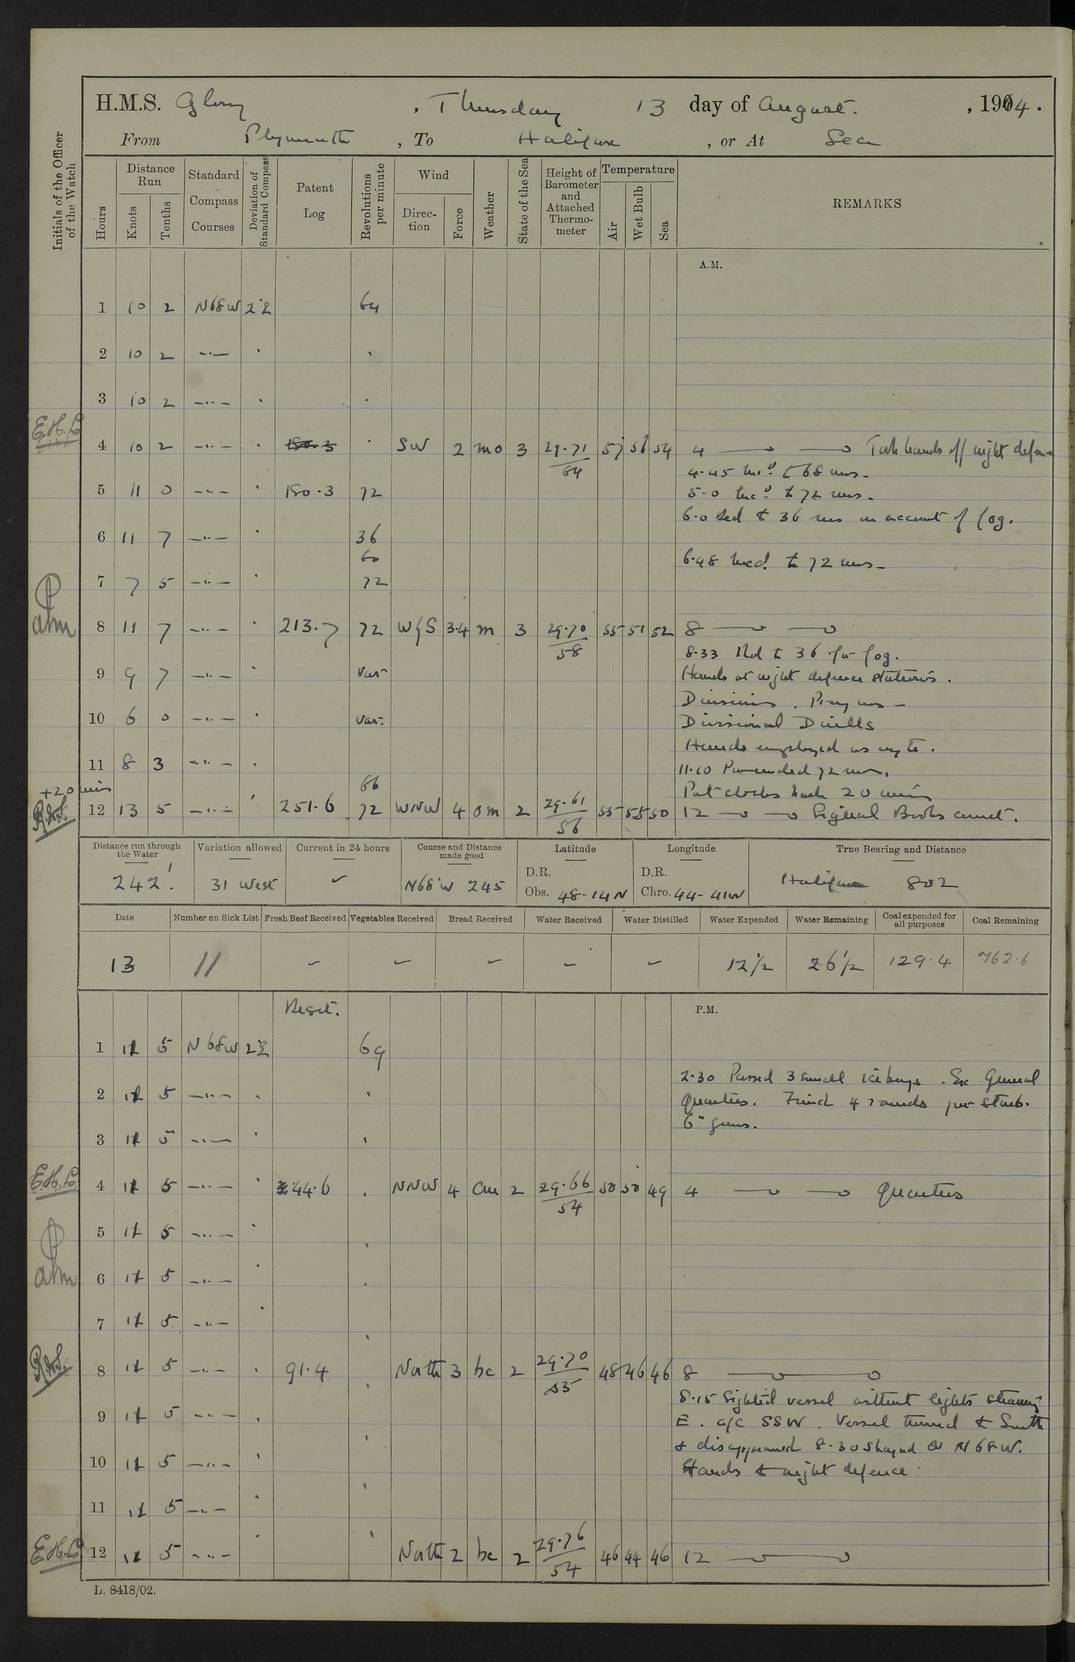 H.M.S. Glory, Thursday 13 day of August, 1914.
From Plymouth, To Halifax, or At Sea
Initials of the Officer of the Watch
Hours
Distance Run
Knots
Tenths
Standard Compass Courses
Deviation of Standard Compass
Patent Log
Revolutions per minute
Wind
Direction
Force
Weather
State of the Sea
Height of Barometer and Attached Thermometer
Temperature
Air
Wet Bulb
Sea
REMARKS
A.M.
1 10 2 N68W 2°E 64
2 10 2 —"—
3 10 2 —"—
E.H.L. 4 10 2 —"— 180.3 SW 2 mo 3 29.71 64 57 56 54 4 Took hands off night defence
4.45 Inc.d to 68 revs.
5 11 0 —"— 180.3 72 5.0 Inc.d to 72 revs.
6.0 Red to 36 revs on account of fog.
6 11 7 —"— 36
60 6.48 Incd. to 72 revs.
7 7 5 —"— 72
8 11 7 —"— 213.7 72 WyS 3.4 m 3 29.70 58 55 51 52 8
8.33 Rd to 36 for fog.
9 9 7 —"— Var Hands at night defence stations.
Divisions. Prayers
10 6 0 —"— Var: Divisional Drills
Hands employed as reqte.
11 8 3 —"— 11.10 Proceeded 72 revs.
+20 mins 86 Put clocks back 20 mins
12 13 5 —"— 251.6 72 WNW 4 om 2 29.61 56 55 55 50 12 Signal Books correct.
Distance run through the Water
242'.
Variation allowed
31 West
Current in 24 hours
Course and Distance made good
N68°W 245
Latitude
D.R.
Obs. 48-14N
Longitude
D.R.
Chro. 44-41W
True Bearing and Distance
Halifax 802
Date Number on Sick List Fresh Beef Received Vegetables Received Bread Received Water Received Water Distilled Water Expended Water Remaining Coal expended for all purposes Coal Remaining
13 11 12½ 26½ 129.4 762.6
Reset. P.M.
1 11 5 N68W 2°E 69
2.30 Passed 3 small icebergs. Ex General
2 11 5 —"— Quarters. Fired 4 rounds per starb.
6" guns.
3 11 5 —"—
E.H.L. 4 11 5 —"— 44.6 NNW 4 2 29.66 54 50 50 49 4 Quarters
5 11 5 —"—
6 11 5 —"—
7 11 5 —"—
8 11 5 —"— 91.4 North 3 bc 2 29.70 55 48 46 46 8
8.15 Sighted vessel without lights steaming
9 11 5 —"— E. a/c SSW. Vessel turned to South
& disappeared 8.30 Shaped Co N68W.
10 11 5 —"— Hands to night defence.
11 11 5 —"—
E.H.L. 12 11 5 —"— North 2 bc 2 29.76 54 46 44 46 12
L. 8418/02.